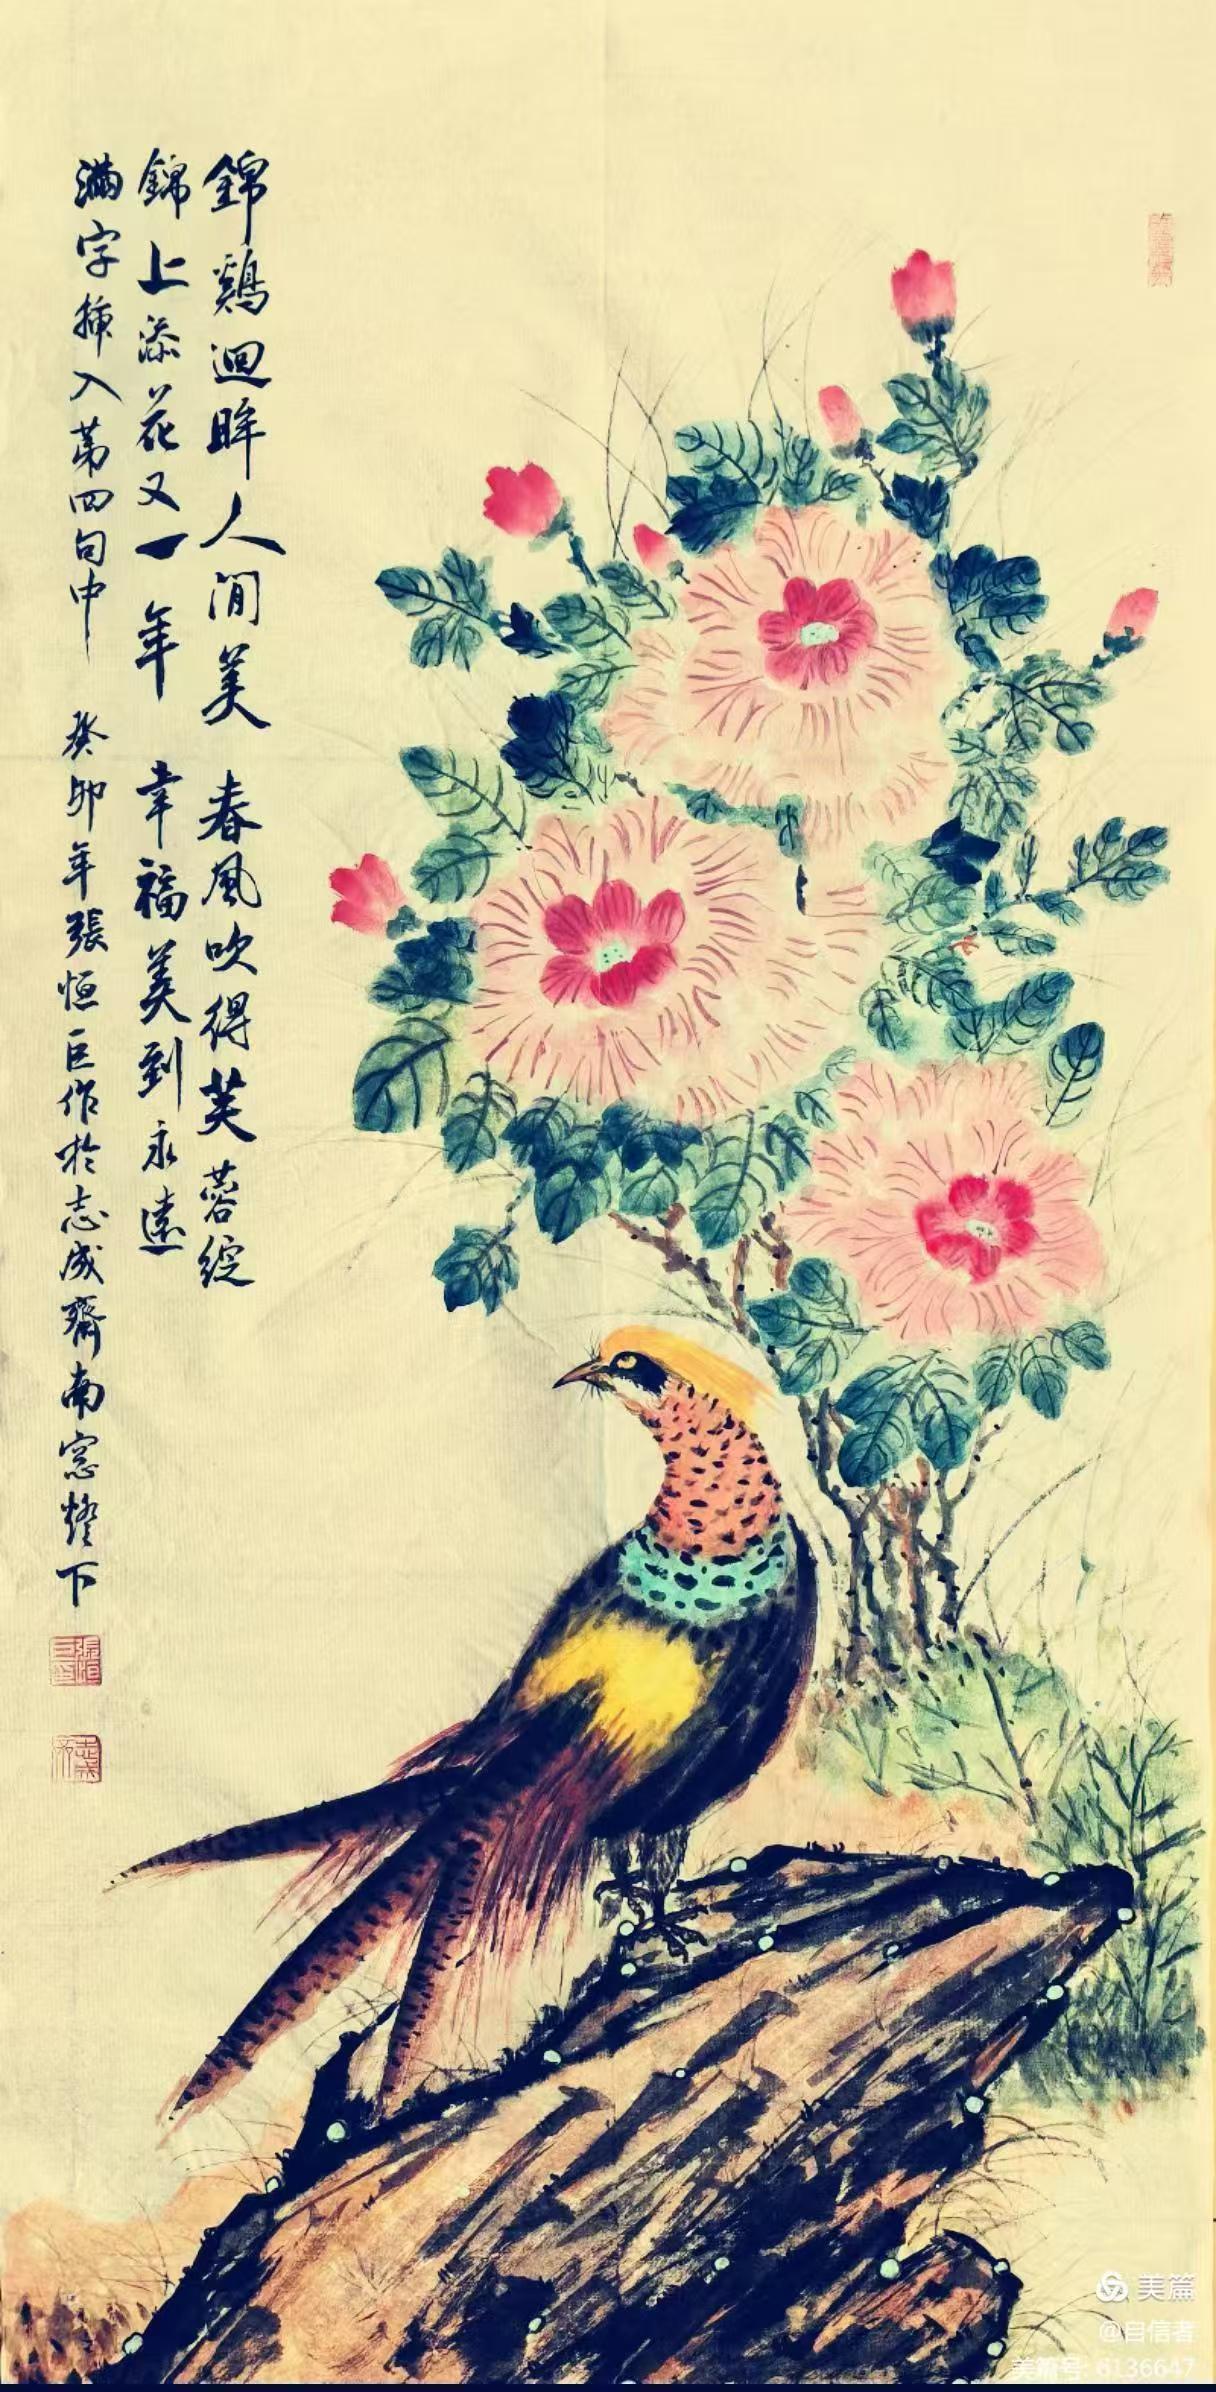 錦鷄迴眸人间美 春風吹得芙蓉綻
錦上添花又一年 幸福美到永遠
滿字插入第四句中 癸卯年張恒巨作於志成齋南窓燈下
美篇
@自信者
美篇号: 6136647